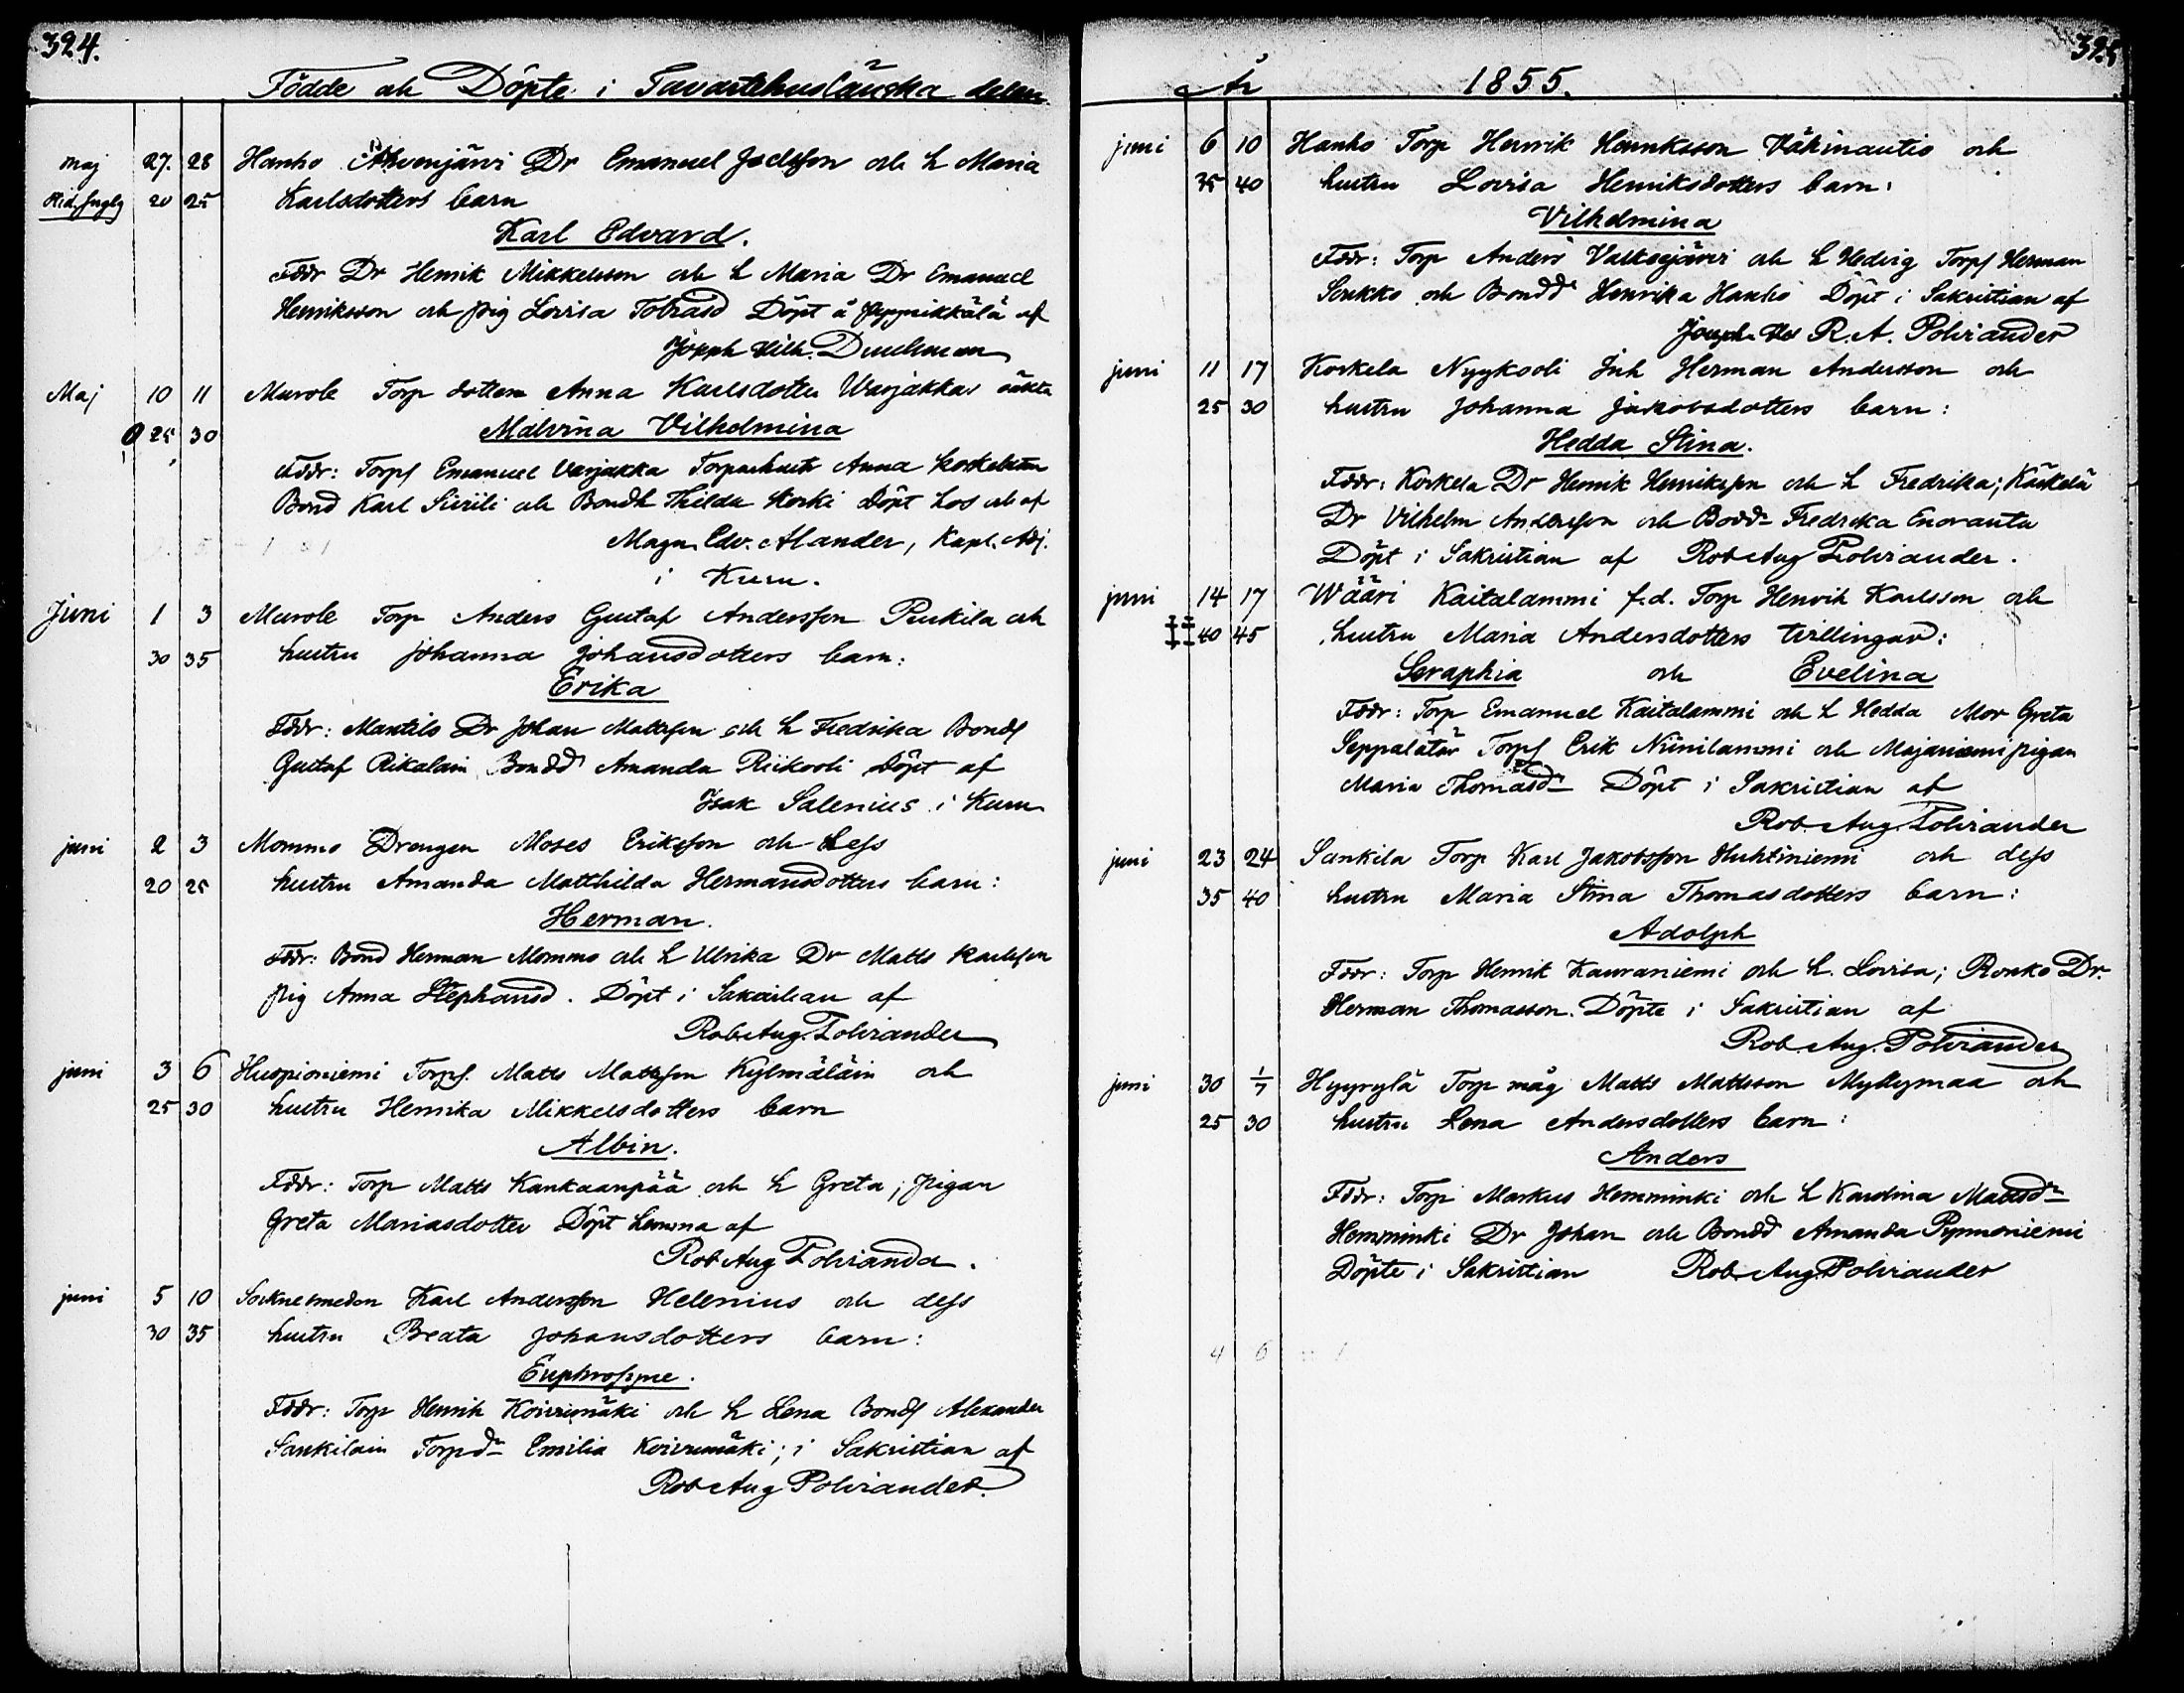 324.
Födde och Döpte i Tavastehuslänska delen
maj 27. 28 Hanho Ahvenjärvi Dr Emanuel Joelsson och h Maria
20 25 Karlsdotters barn
Karl Edvard.
Fddr Dr Henrik Mikkelsson och h Maria Dr Emanuel
Henriksson och pig Lovisa Tobiasd Döpt å af
Joseph Vilh. Duuhman
Maj 10 11 Murole Torp dottern Anna Karlsdotter Warjakkas oäkta
25 30 Malvina Vilhelmina
Fddr: Torps Emanuel Varjakka Anna
Bond Karl och Bondh Thilda Döpt hos och af
Magn. Edv. Alander, Kapl. Adj.
i Kuru.
Juni 1 3 Murole Torp Anders Gustaf Andersson Peukila och
30 35 hustru Johanna Johansdotters barn:
Erika
Fddr: Mantils Dr Johan Mattsson och h Fredrika Bonds
Gustaf Rikalain Bondd Amanda Riikooli Döpt af
Isak Salenius i Kuru
juni 2 3 Mommo Drengen Moses Eriksson och dess
20 25 hustru Amanda Matthilda Hermansdotters barn:
Herman.
Fddr: Bond Herman Mommo och h Ulrika Dr Matts Karlsson
pig Anna Stephansd. Döpt i Sakristian af
Rob Aug. Polviander
juni 3 6 Huopioniemi Torps. Matts Mattsson Kylmäläin och
25 30 hustru Henrika Mikkelsdotters barn
Albin.
Fddr: Torp Matts Kankaanpää och h Greta; pigan
Greta Mariasdotter Döpt hemma af
Rob Aug Polviander.
juni 5 10 Socknesmeden Karl Andersson Helenius och dess
30 35 hustru Beata Johansdotters barn:
Euphrosyne.
Fddr: Torp Henrik Koivumäki och h Lena Bonds Alexander
Sankilain Torpd Emilia Koivumäki; i Sakristian af
Rob Aug Polviander.
325
År 1855.
juni 6 10 Hanho Torp Henrik Henriksson Vähinautio och
35 40 hustru Lovisa Henriksdotters barn:
Vilhelmina
Fddr: Torp Anders Valkeejärvi och h Hedvig Torps Herman
Sorkko och Bondd Henrika Hanho Döpt i Sakristian af
Joseph R. A. Polviander
juni 11 17 Korkela Nyykooli Inh Herman Andersson och
25 30 hustru Johanna Jakobsdotters barn:
Hedda Stina.
Fddr: Korkela Dr Henrik Henriksson och h Fredrika; Käikälä
Dr Vilhelm Andersson och Bondd Fredrika Enoranta
Döpt i Sakristian af Rob Aug Polviander.
juni 14 17 Wääri Kaitalammi f.d. Torp Henrik Karlsson och
40 45 hustru Maria Andersdotters tvillingar:
Seraphia och Evelina
Fddr: Torp Emanuel Kaitalammi och h Hedda Mor Greta
Seppalätär Torps Erik Niinilammi och Majaniemi pigan
Maria Thomasd Döpt i Sakristian af
Rob. Aug. Polviander
juni 23 24 Sankila Torp Karl Jakobsson Huhtiniemi och dess
35 40 hustru Maria Stina Thomasdotters barn:
Adolph
Fddr: Torp Henrik Kauraniemi och h. Lovisa; Ronko Dr.
Herman Thomasson. Döpte i Sakristian af
Rob. Aug. Polviander
juni 30 1/7 Hyyrylä Torp måg Matts Mattsson Myllymaa och
25 30 hustru Lena Andersdotters barn:
Anders
Fddr: Torp Markus Hemminki och h Karolina Mattsd
Hemminki Dr Johan och Bondd Amanda Pynnöniemi
Döpte i Sakristian Rob. Aug. Polviander